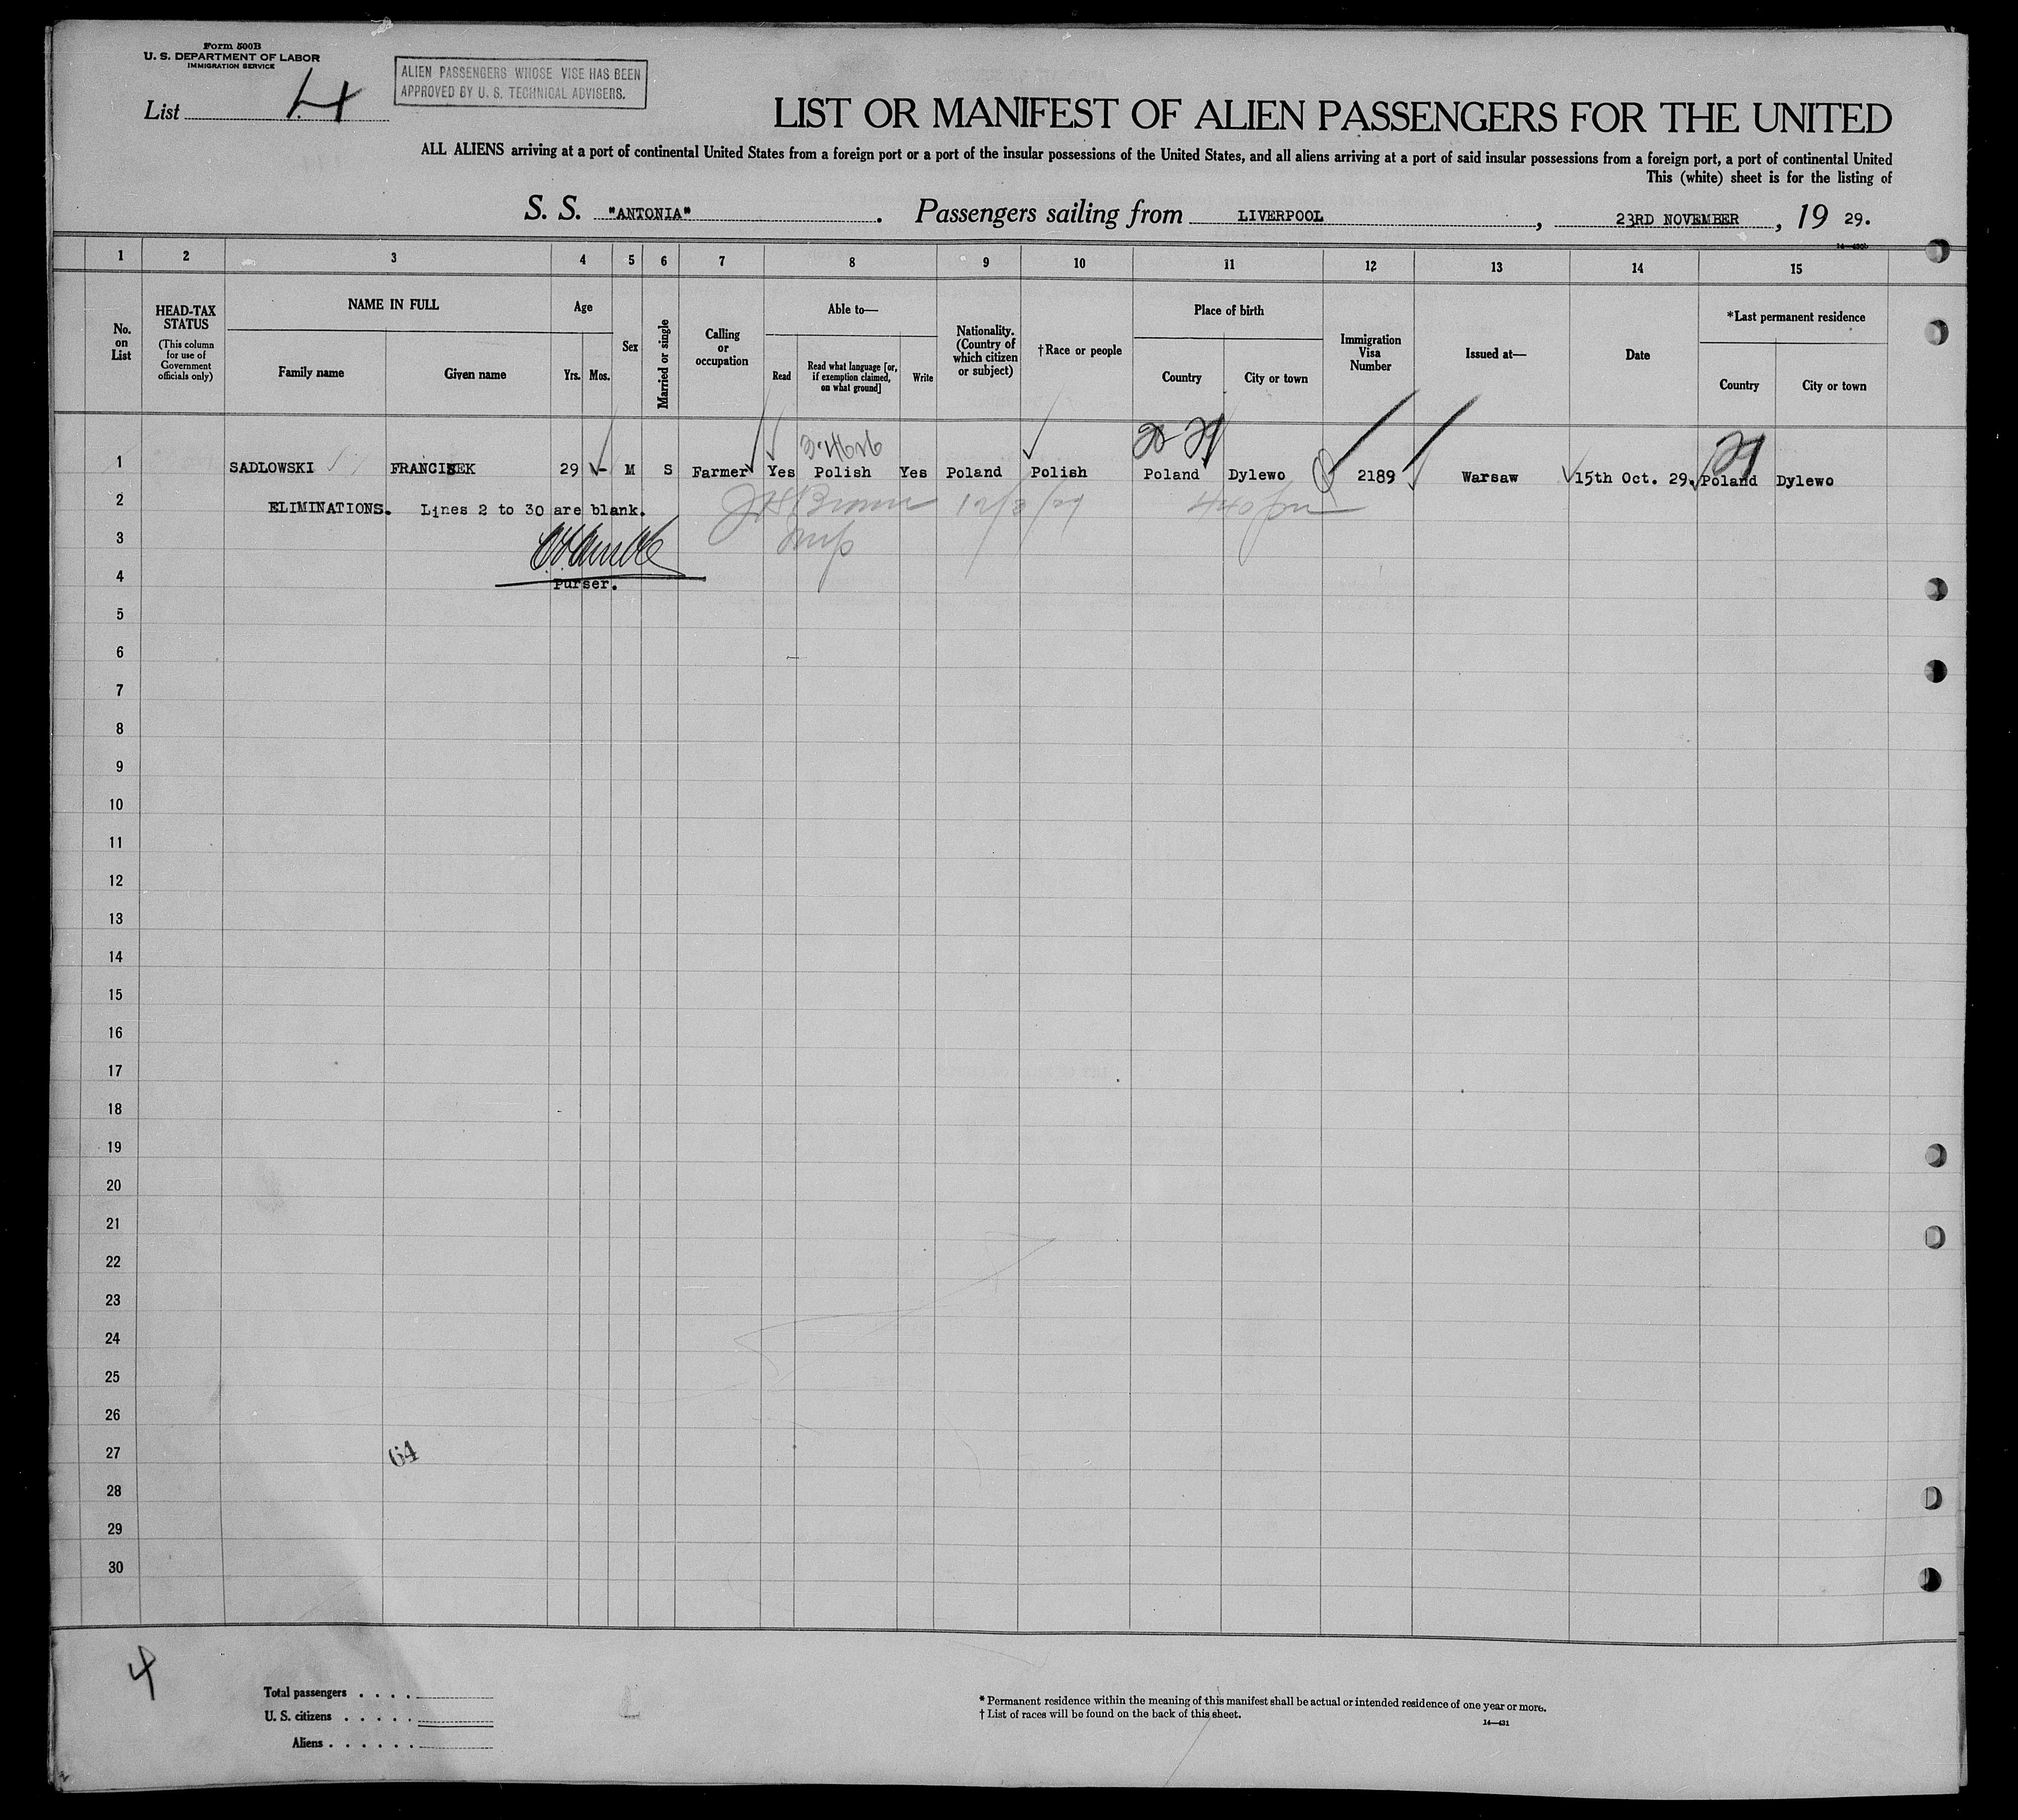 Form 500B
U. S. DEPARTMENT OF LABOR
IMMIGRATION SERVICE
List 4
ALIEN PASSENGERS WHOSE VISE HAS BEEN
APPROVED BY U. S. TECHNICAL ADVISERS.
LIST OR MANIFEST OF ALIEN PASSENGERS FOR THE UNITED
ALL ALIENS arriving at a port of continental United States from a foreign port or a port of the insular possessions of the United States, and all aliens arriving at a port of said insular possessions from a foreign port, a port of continental United
This (white) sheet is for the listing of
S. S. "ANTONIA". Passengers sailing from LIVERPOOL, 23RD NOVEMBER, 19 29.
1 2 3 4 5 6 7 8 9 10 11 12 13 14 15
No. on List
HEAD-TAX STATUS
(This column for use of Government officials only)
NAME IN FULL
Family name
Given name
Age
Yrs.
Mos.
Sex
Married or single
Calling or occupation
Able to—
Read
Read what language [or, if exemption claimed, on what ground]
Write
Nationality. (Country of which citizen or subject)
†Race or people
Place of birth
Country
City or town
Immigration Visa Number
Issued at—
Date
*Last permanent residence
Country
City or town
1 SADLOWSKI FRANCISEK 29 - M S Farmer Yes Polish Yes Poland Polish Poland Dylewo 2189 Warsaw 15th Oct. 29. Poland Dylewo
2 ELIMINATIONS. Lines 2 to 30 are blank.
3
4 Purser.
5
6
7
8
9
10
11
12
13
14
15
16
17
18
19
20
21
22
23
24
25
26
27 64
28
29
30
4
Total passengers . . . .
U. S. citizens . . . . .
Aliens . . . . . .
* Permanent residence within the meaning of this manifest shall be actual or intended residence of one year or more.
† List of races will be found on the back of this sheet.
14—431